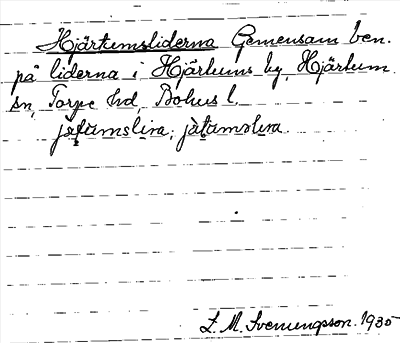 Hjärtumsliderna Gemensam ben.
på liderna i Hjärtums by, Hjärtum
sn, Torpe hd, Bohus l.
jatumslina, jatumslina.
L. M. Svenungsson. 1935